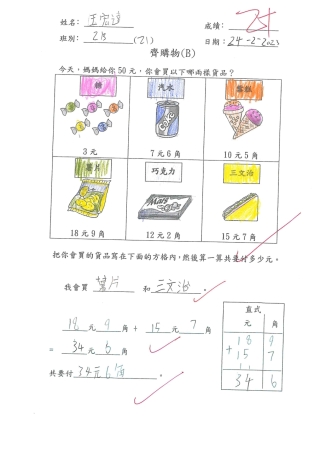 姓名: 王宏達 成績:
班別: 2B (21) 日期: 24-2-2023
齊購物(B)
今天，媽媽給你50元，你會買以下哪兩樣貨品？
糖 汽水 雪糕
3元 7元6角 10元5角
薯片 巧克力 三文治
18元9角 12元2角 15元7角
把你會買的貨品寫在下面的方格內，然後算一算共要付多少元。
我會買 薯片 和 三文治 。
直式
元 角
18元9角 + 15元7角
18 9
= 34元6角
+ 15 7
共要付 34元6角 。
34 6